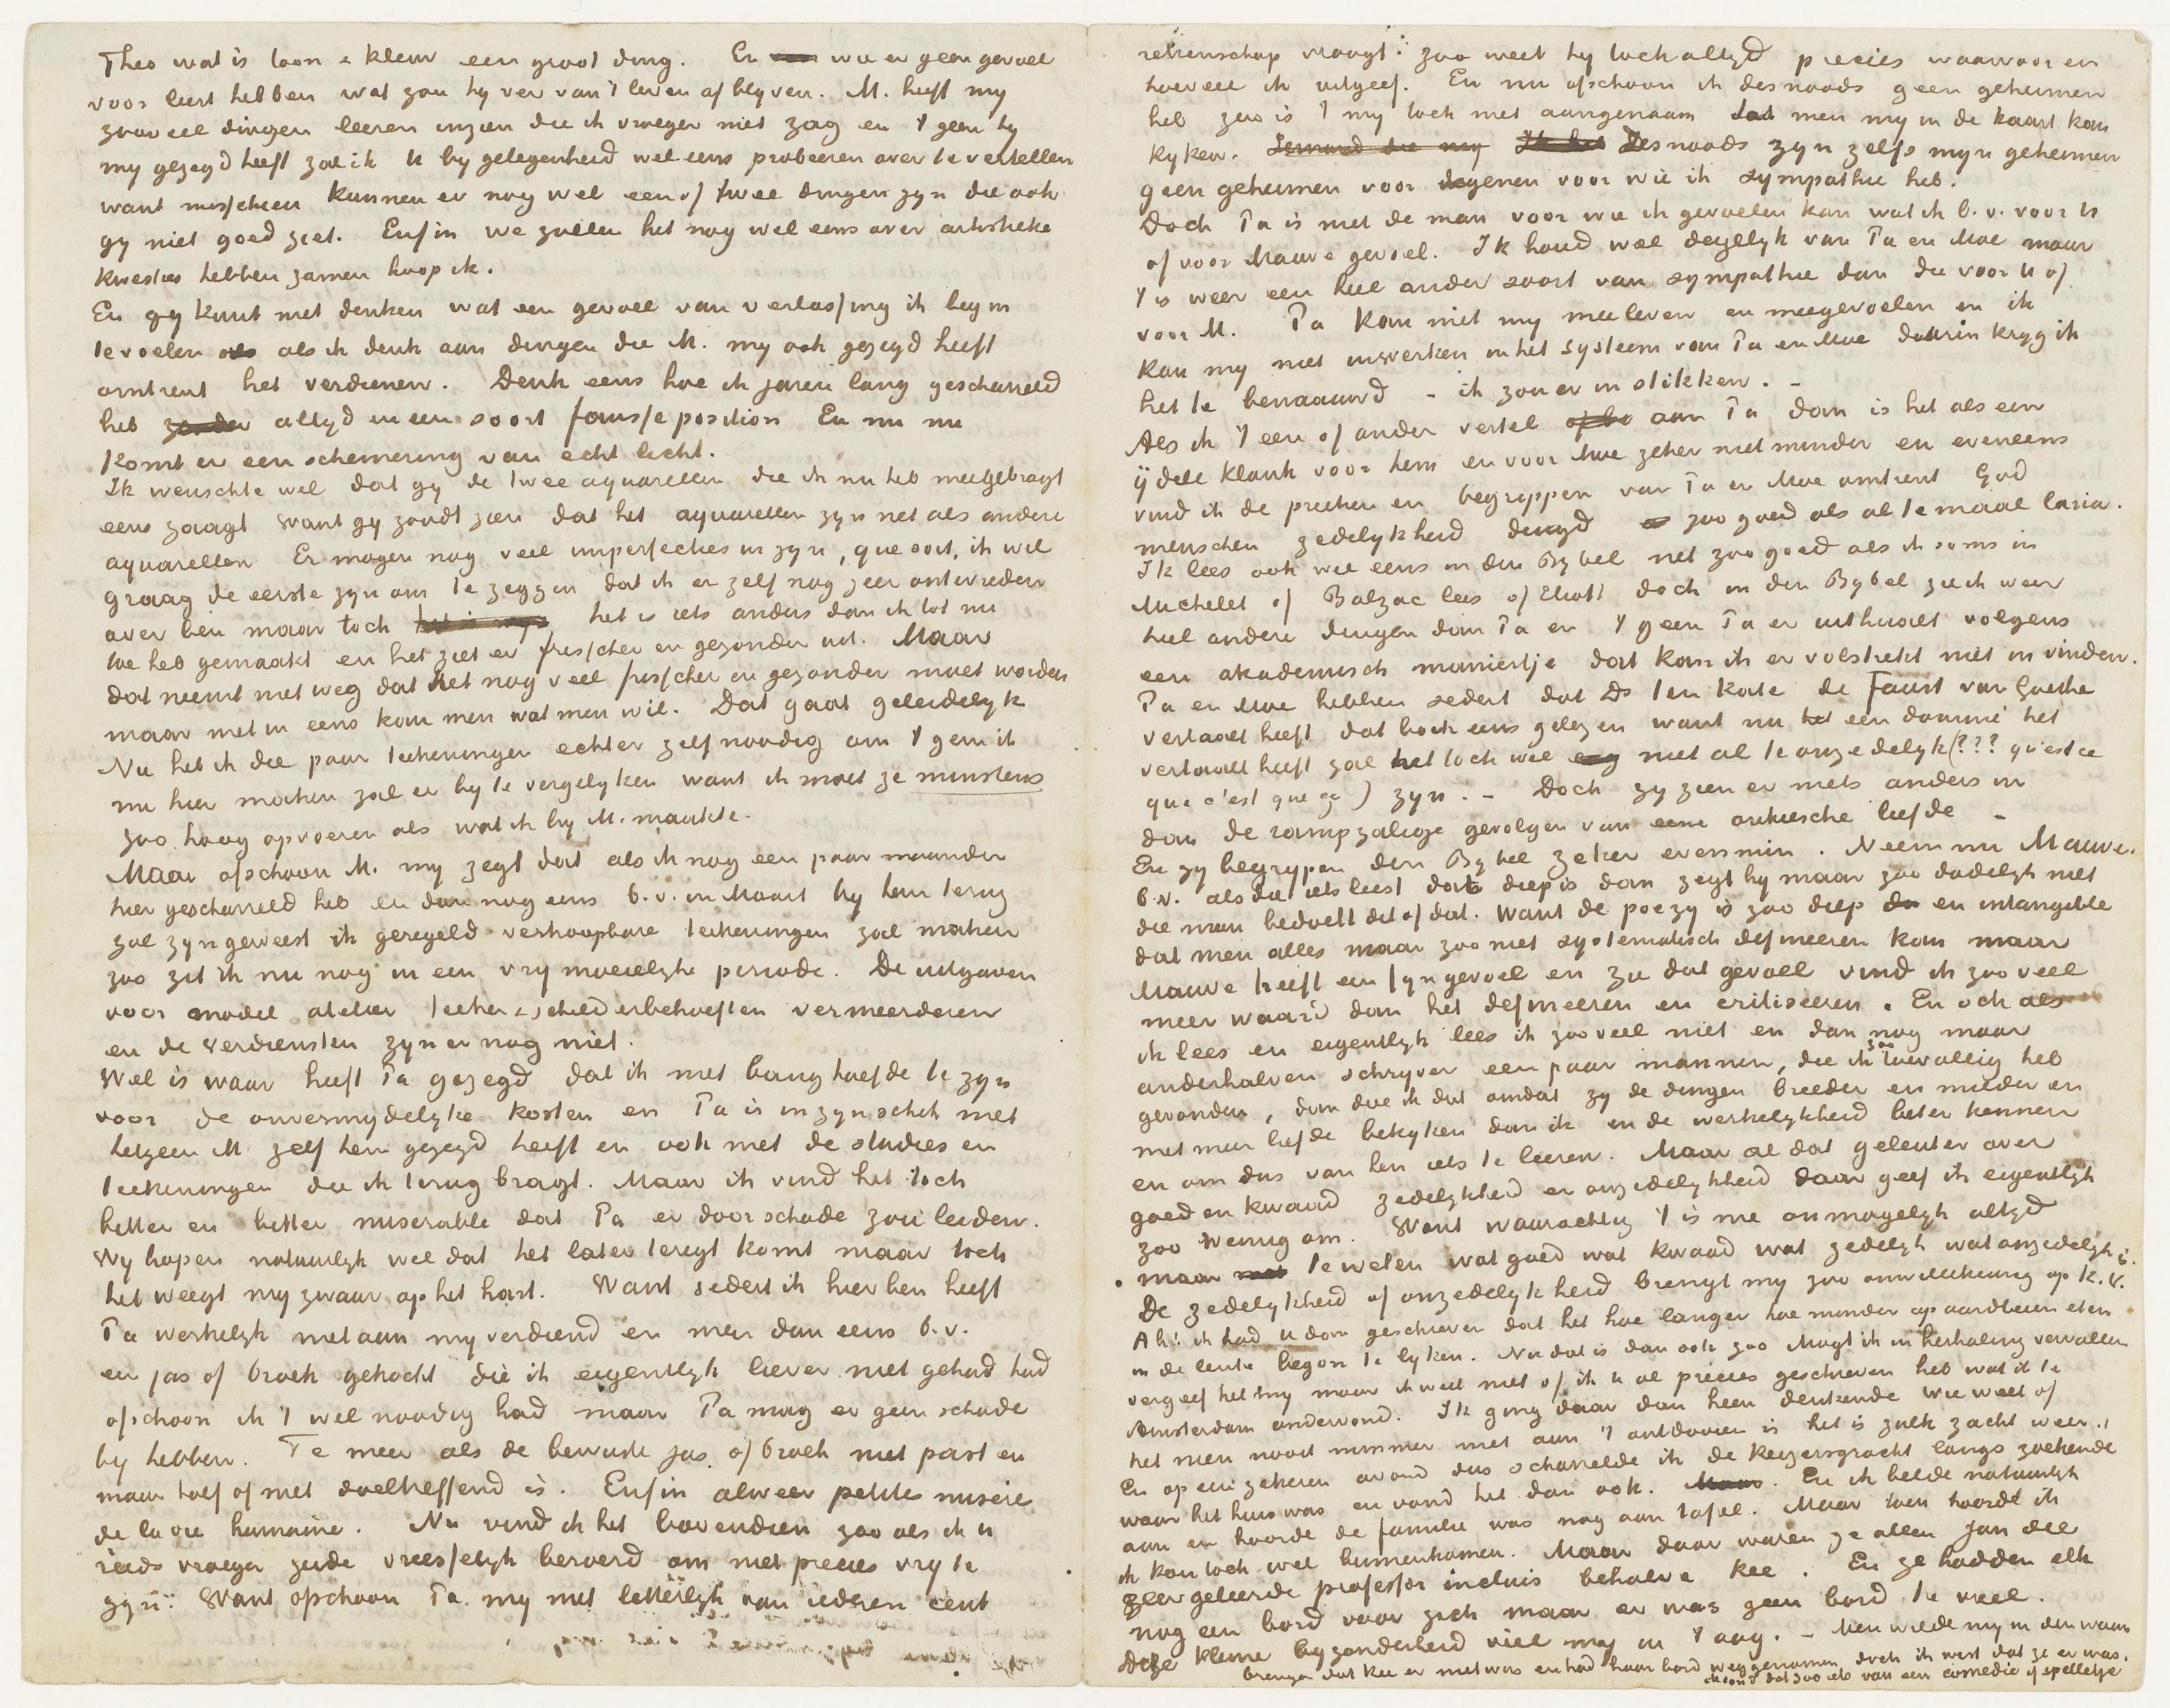 Theo wat is toon & kleur een groot ding. En wie er geen gevoel
voor leert hebben wat zou hy ver van 't leven af blyven. M. heeft my
zooveel dingen leeren inzien die ik vroeger niet zag en 't geen hy
my gezegd heeft zal ik U by gelegenheid wel eens probeeren over te vertellen
want misschien kunnen er nog wel een of twee dingen zyn die ook
gy niet goed ziet. Enfin we zullen het nog wel eens over artistieke
kwesties hebben zamen hoop ik.
En gy kunt niet denken wat een gevoel van verlossing ik begin
te voelen als ik denk aan dingen die M. my ook gezegd heeft
omtrent het verdienen. Denk eens hoe ik jaren lang gescharreld
heb zonder altyd in een soort fausse position En nu nu
komt er een schemering van echt licht.
Ik wenschte wel dat gy de twee aquarellen die ik nu heb meegebragt
eens zaagt want gy zoudt zien dat het aquarellen zyn net als andere
aquarellen Er mogen nog veel imperfecties in zyn, que soit, ik wil
graag de eerste zyn om te zeggen dat ik er zelf nog zeer ontevreden
over ben maar toch het is iets anders dan ik tot nu
toe heb gemaakt en het ziet er frisscher en gezonder uit. Maar
dat neemt niet weg dat het nog veel frisscher en gezonder moet worden
maar niet in eens kan men wat men wil. Dat gaat geleidelyk
Nu heb ik die paar teekeningen echter zelf noodig om 't geen ik
nu hier maken zal er by te vergelyken want ik moet ze minstens
zoo hoog opvoeren als wat ik by M. maakte.
Maar ofschoon M. my zegt dat als ik nog een paar maanden
hier gescharreld heb en dan nog eens b.v. in Maart by hem terug
zal zyn geweest ik geregeld verkoopbare teekeningen zal maken
zoo zit ik nu nog in een vry moeielyke periode. De uitgaven
voor model atelier teeken & schilderbehoeften vermeerderen
en de verdiensten zyn er nog niet.
Wel is waar heeft Pa gezegd dat ik niet bang hoefde te zyn
voor de onvermydelyke kosten en Pa is in zyn schik met
hetgeen M zelf hem gezegd heeft en ook met de studies en
teekeningen die ik terug bragt. Maar ik vind het toch
bitter en bitter miserable dat Pa er door schade zou leiden.
Wy hopen natuurlyk wel dat het later teregt komt maar toch
het weegt my zwaar op het hart. Want sedert ik hier ben heeft
Pa werkelyk niet aan my verdiend en meer dan eens b.v.
een jas of broek gekocht die ik eigentlyk liever niet gehad had
ofschoon ik 't wel noodig had maar Pa mag er geen schade
by hebben. Te meer als de bewuste jas of broek niet past en
maar half of niet doeltreffend is. Enfin alweer petite misère
de la vie humaine. Nu vind ik het bovendien zoo als ik u
reeds vroeger zeide vreesselyk beroerd om niet precies vry te
zyn. Want ofschoon Pa my niet letterlyk van iederen cent
rekenschap vraagt: zoo weet hy toch altyd precies waarvoor en
hoeveel ik uitgeef. En nu ofschoon ik desnoods geen geheimen
heb zoo is 't my toch niet aangenaam dat men my in de kaart kan
kyken. Iemand die my Ik heb Desnoods zyn zelfs myn geheimen
geen geheimen voor degenen voor wie ik sympathie heb.
Doch Pa is niet de man voor wie ik gevoelen kan wat ik b.v. voor U
of voor Mauve gevoel. Ik houd wel degelyk van Pa en Moe maar
't is weer een heel ander soort van sympathie dan die voor U of
voor M. Pa kan niet my meeleven en meegevoelen en ik
kan my niet inwerken in het systeem van Pa en Moe daarin kryg ik
het te benaauwd - ik zou er in stikken. -
Als ik 't een of ander vertel aan Pa dan is het als een
ydele klank voor hem en voor Moe zeker niet minder en eveneens
vind ik de preeken en begrippen van Pa en Moe omtrent God
menschen zedelykheid deugd zoo goed als al te maal laria.
Ik lees ook wel eens in den Bybel net zoo goed als ik soms in
Michelet of Balzac lees of Eliott doch in den Bybel zie ik weer
heel andere dingen dan Pa en 't geen Pa er uithaalt volgens
een akademisch maniertje dat kan ik er volstrekt niet in vinden.
Pa en Moe hebben sedert dat Ds ten Kate de Faust van Goethe
vertaalt heeft dat boek eens gelezen want nu een dominé het
vertaalt heeft zal het toch wel niet al te onzedelyk (??? qu'est ce
que c'est que ça) zyn. - Doch zy zien er niets anders in
dan de rampzalige gevolgen van eene onkiesche liefde -
En zy begrypen den Bybel zeker evenmin. Neem nu Mauve.
b.v. als die iets leest dat diep is dan zegt hy maar zoo dadelyk niet
die man bedoelt dit of dat. Want de poezy is zoo diep en intangible
dat men alles maar zoo niet systematisch defineeren kan maar
Mauve heeft een fyn gevoel en zie dat gevoel vind ik zoo veel
meer waard dan het defineeren en critiseeren. En och als
ik lees en eigentlyk lees ik zooveel niet en dan nog maar
anderhalven schryver een paar mannen, die ik zoo toevallig heb
gevonden, dan doe ik dat omdat zy de dingen breeder en milder en
met meer liefde bekyken dan ik en de werkelykheid beter kennen
en om dus van hen iets te leeren. Maar al dat geleuter over
goed en kwaad zedelykheid en onzedelykheid daar geef ik eigentlyk
zoo weinig om. Want waarachtig 't is me onmogelyk altyd
maar te weten wat goed wat kwaad wat zedelyk wat onzedelyk is.
De zedelykheid of onzedelykheid brengt my zoo onwillekeurig op K.V.
Ah! ik had U dan geschreven dat het hoe langer hoe minder op aardbeien eten
in de lente begon te lyken. Nu dat is dan ook zoo Mogt ik in herhaling vervallen
vergeef het my maar ik weet niet of ik u al precies geschreven heb wat ik te
Amsterdam ondervond. Ik ging daar dan heen denkende wie weet of
het neen nooit nimmer niet aan 't ontdooien is het is zulk zacht weer.
En op een zekeren avond dus scharrelde ik de Keizersgracht langs zoekende
waar het huis was en vond het dan ook. En ik belde natuurlyk
aan en hoorde de familie was nog aan tafel. Maar toen hoorde ik
ik kon toch wel binnenkomen. Maar daar waren ze allen Jan die
zeer geleerde professor incluis behalve Kee. En ze hadden elk
nog een bord voor zich maar er was geen bord te veel.
Deze kleine byzonderheid viel my in 't oog. - Men wilde my in den waan
brengen dat Kee er niet was en had haar bord weggenomen doch ik wist dat ze er was.
ik vond dat zoo iets van een comedie of spelletje